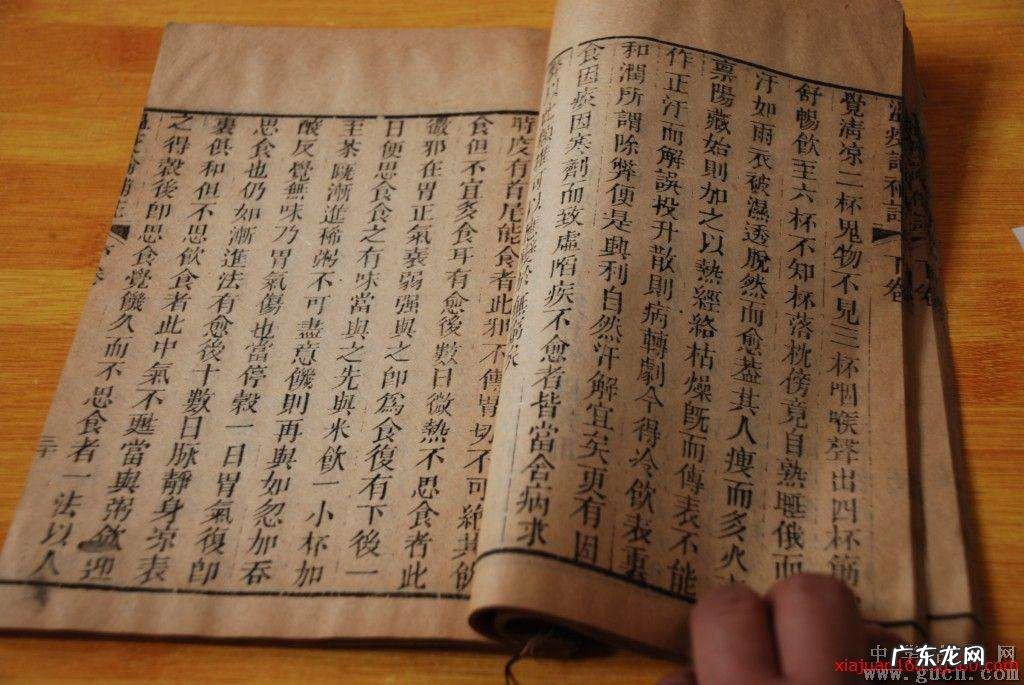 下卷
覺淸凉二杯鬼物不見三杯咽喉聲出四杯筋
舒暢飲至六杯不知杯落枕傍竟自熟睡俄而
汗如雨衣被濕透脫然而愈葢其人瘦而多火
禀陽藏始則加之以熱經絡枯燥旣而傳表不能
作正汗而解誤投升散則病轉劇今得冷飲表裏
和潤所謂除弊便是興利自然汗解宜矣更有因
食因痰因寒劑而致虛陷疾不愈者皆當舍病求
時疫有首尾能食者此邪不傳胃切不可絕其飲
食但不宜多食耳有愈後數日微熱不思食者此
微邪在胃正氣衰弱强與之卽爲食復有下後一
日便思食食之有味當與之先與米飲一小杯加
至茶甌漸進稀粥不可盡意饑則再與如忽加吞
酸反覺無味乃胃氣傷也當停穀一日胃氣復卽
思食也仍如漸進法有愈後十數日脉靜身凉表
裏俱和但不思飲食者此中氣不甦當與粥飲迎
之得穀後卽思食覺饑久而不思食者一法以人
广东龙网
www.gucn.com